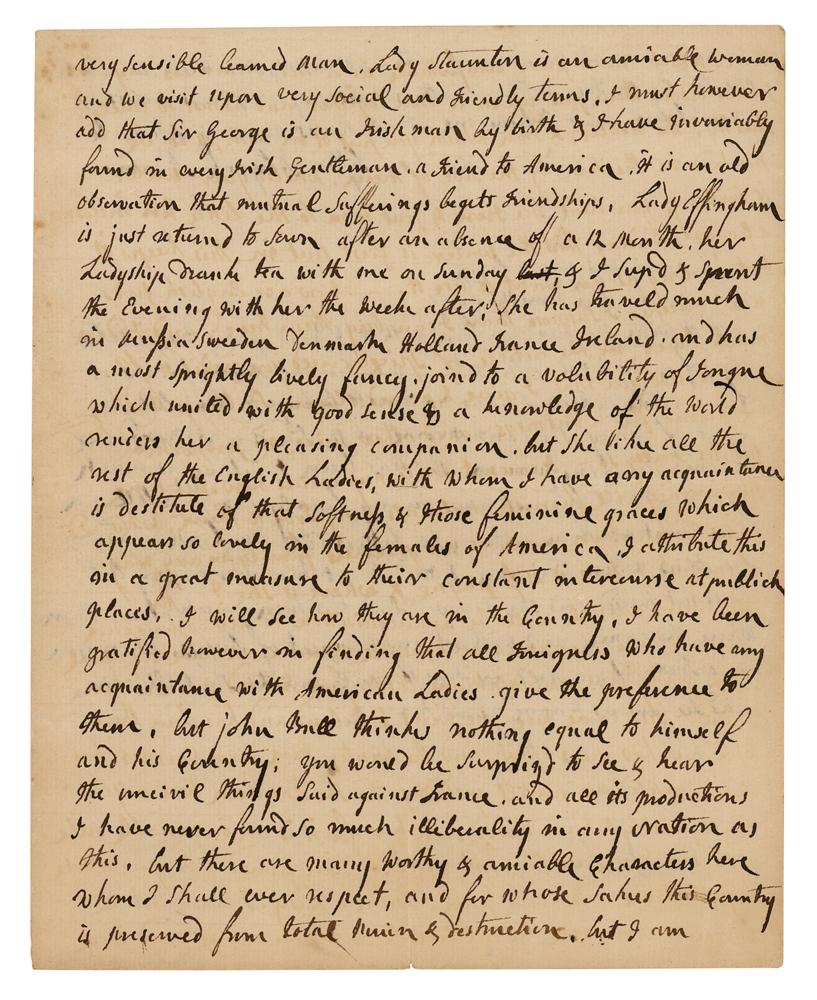 very sensible learned Man. Lady Staunton is an amiable woman
and we visit upon very social and Friendly terms. I must however
add that Sir George is an Irish man by birth & I have invariably
found in every Irish Gentleman. a Friend to America. it is an old
observation that mutual Sufferings begets Friendships. Lady Effingham
is just returnd to Town after an absence of a 12 Month. her
Ladyship Drank tea with me on Sunday last, & I Supd & Spent
the Evening with her the Week after. She has traveld much
in Russia Sweeden Denmark Holland France Ireland. and has
a most sprightly lively fancy. joind to a volubility of Tongue
which united with good sense & a knowledge of the World
renders her a pleasing companion. but She like all the
rest of the English Ladies, with whom I have any acquaintance
is destitute of that Softness & those feminine graces which
appears so lovely in the females of America. I attribute this
in a great measure to their constant intercourse at publick
places. I will see how they are in the Country. I have been
gratified however in finding that all Foreigners who have any
acquaintance with American Ladies. give the preference to
them. but john Bull thinks nothing equal to himself
and his Country; you would be Surprizd to See & hear
the uncivil things Said against France. and all its productions
I have never found so much illiberality in any Nation as
this. but there are many Worthy & amiable Characters here
whom I Shall ever respect, and for whose Sakes this Country
is preserved from total Ruien & destruction. but I am